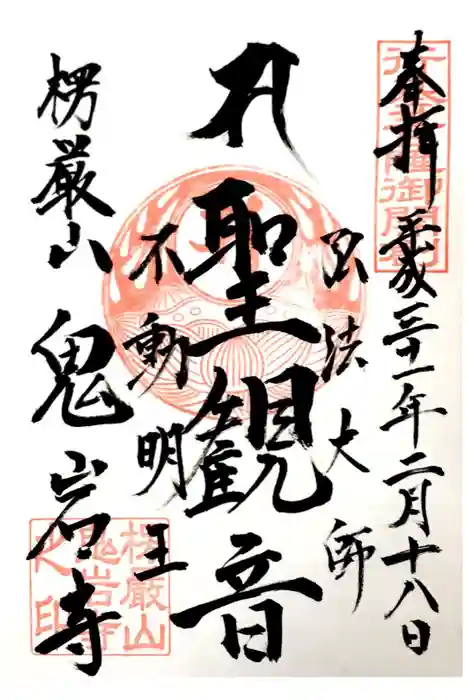 奉拝 平成三十一年二月十八日
弘法大師
聖観音
不動明王
楞厳山 鬼岩寺
楞厳山鬼岩寺之印